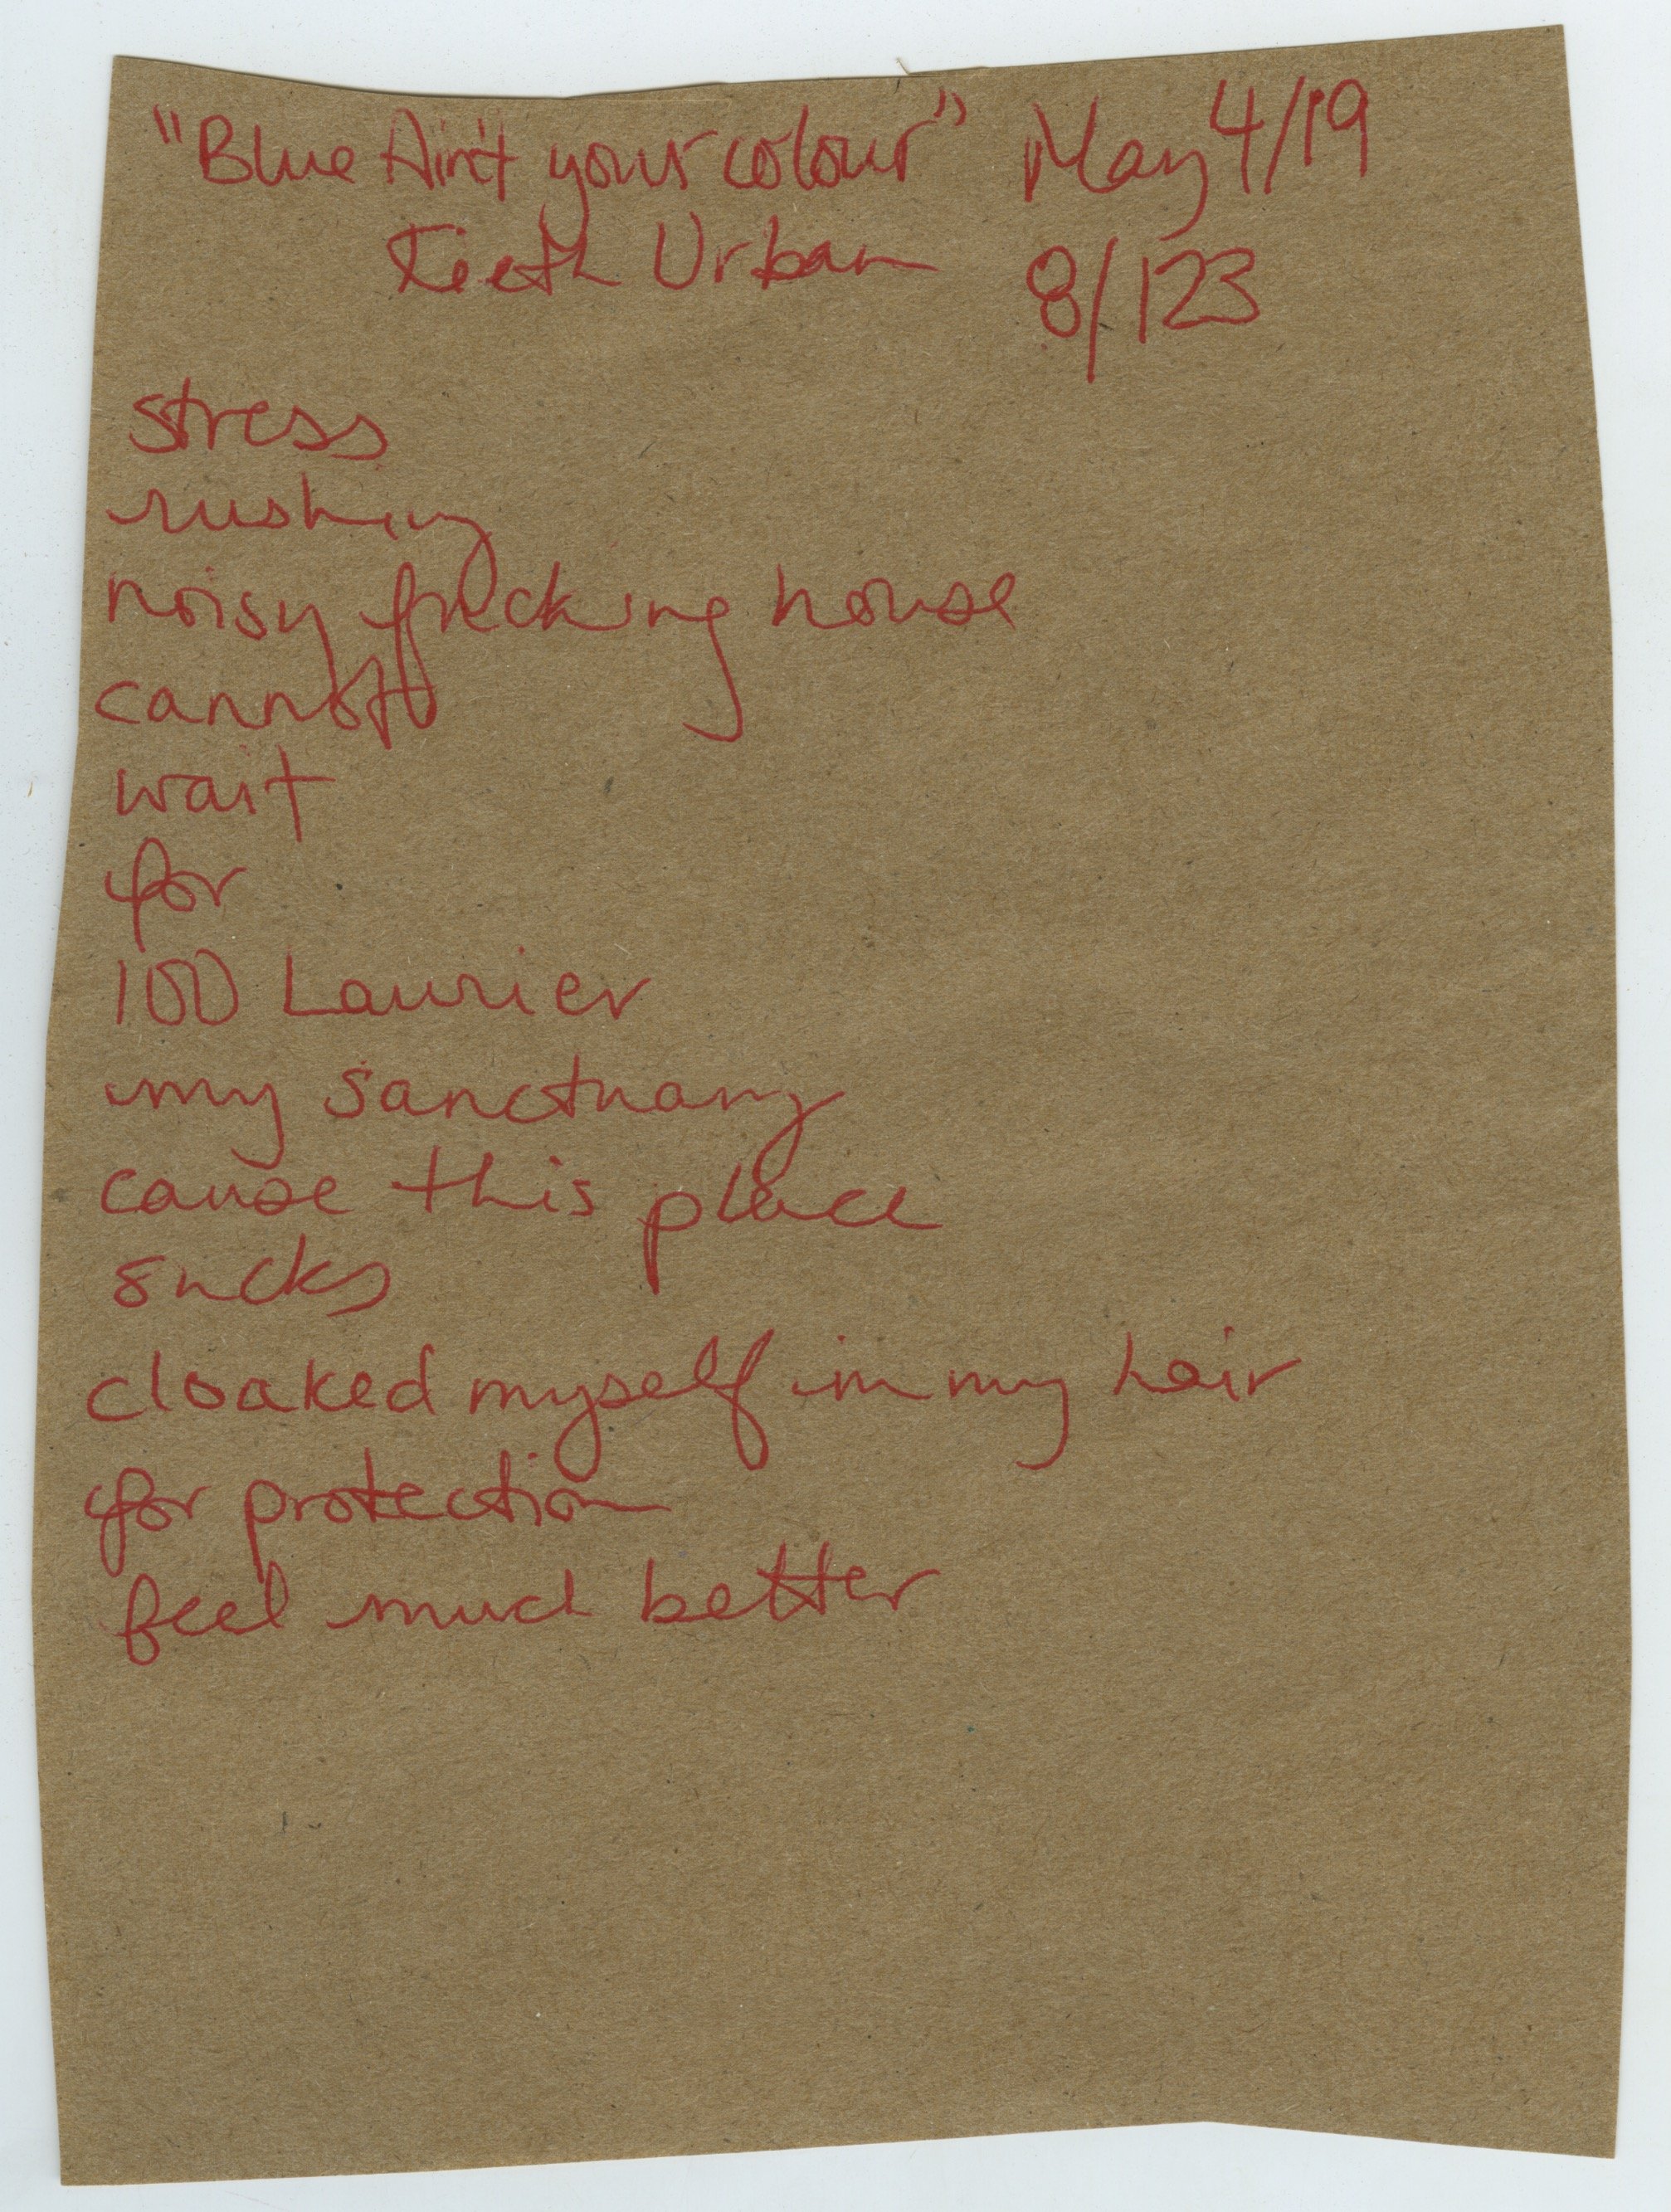 "Blue Ain't your colour" May 4/19
Keith Urban 8/123
stress
rushing
noisy fricking house
cannot
wait
for
100 Laurier
my sanctuary
cause this place
sucks
cloaked myself in my hair
for protection
feel much better